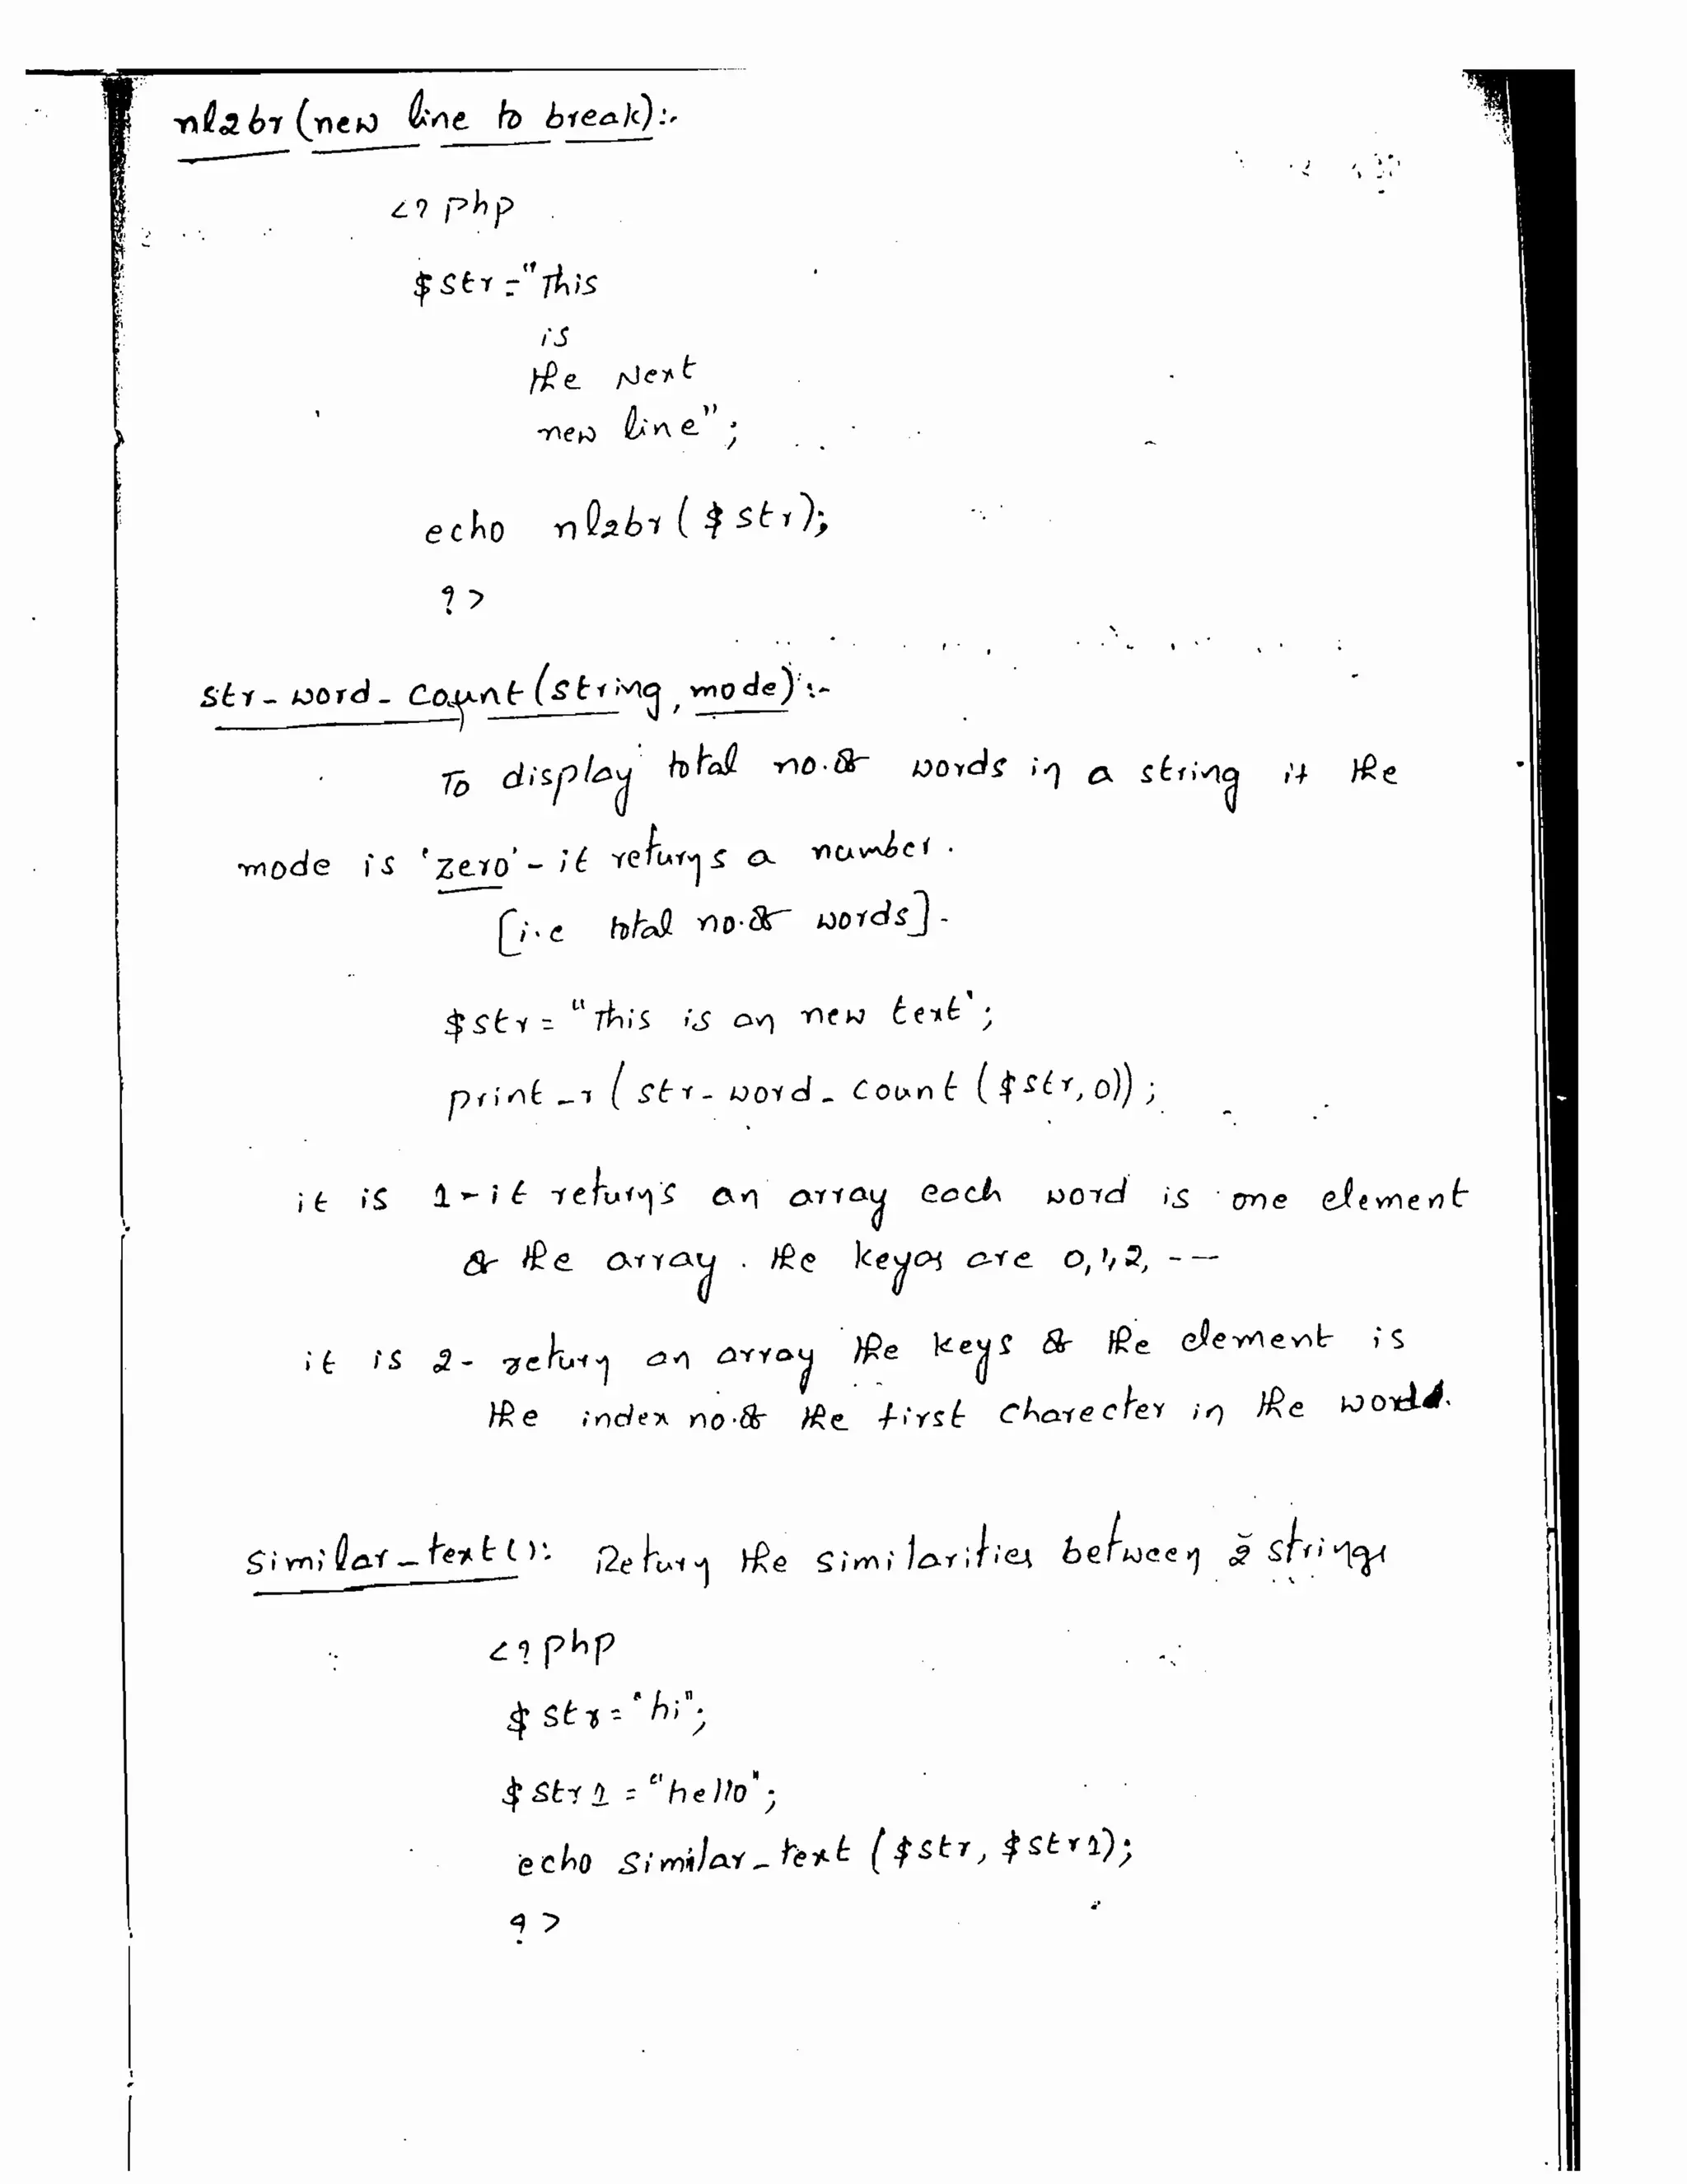 nl2br (new line to break):-
<? php
$str = "This
is
the Next
new line";
echo nl2br ($str);
?>
str_word_count (string, mode):-
To display total no.of words in a string if the
mode is 'zero' - it returns a number.
[i.e total no.of words].
$str = "This is an new text';
print_r (str_word_count ($str, 0));
if is 1 - it return's an array each word is one element
of the array. the keyas are 0,1,2, ---
if is 2- return an array the keys of the element is
the index no.of the first charecter in the word.
similar_text(): Return the similarities between 2 strings
<? php
$str = "hi";
$str1 = "hello";
echo similar_text ($str, $str1);
?>